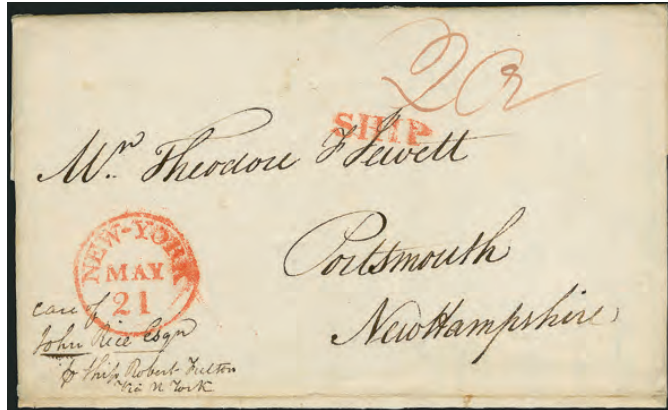 22
SHIP
Mr. Theodore F Jewett
Portsmouth
New Hampshire,
NEW-YORK
MAY
21
care of
John Rice Esqr
Ship Robert Fulton
Via N York